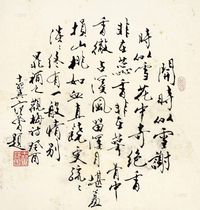 開時似雪謝
時似雪花中奇絕香
非在蕊香非在萼骨中
香徹占溪風留溪月堪羞
損山桃如血直饒更疏疏
淡淡終有一般情別
補之梅癸酉
十翼題